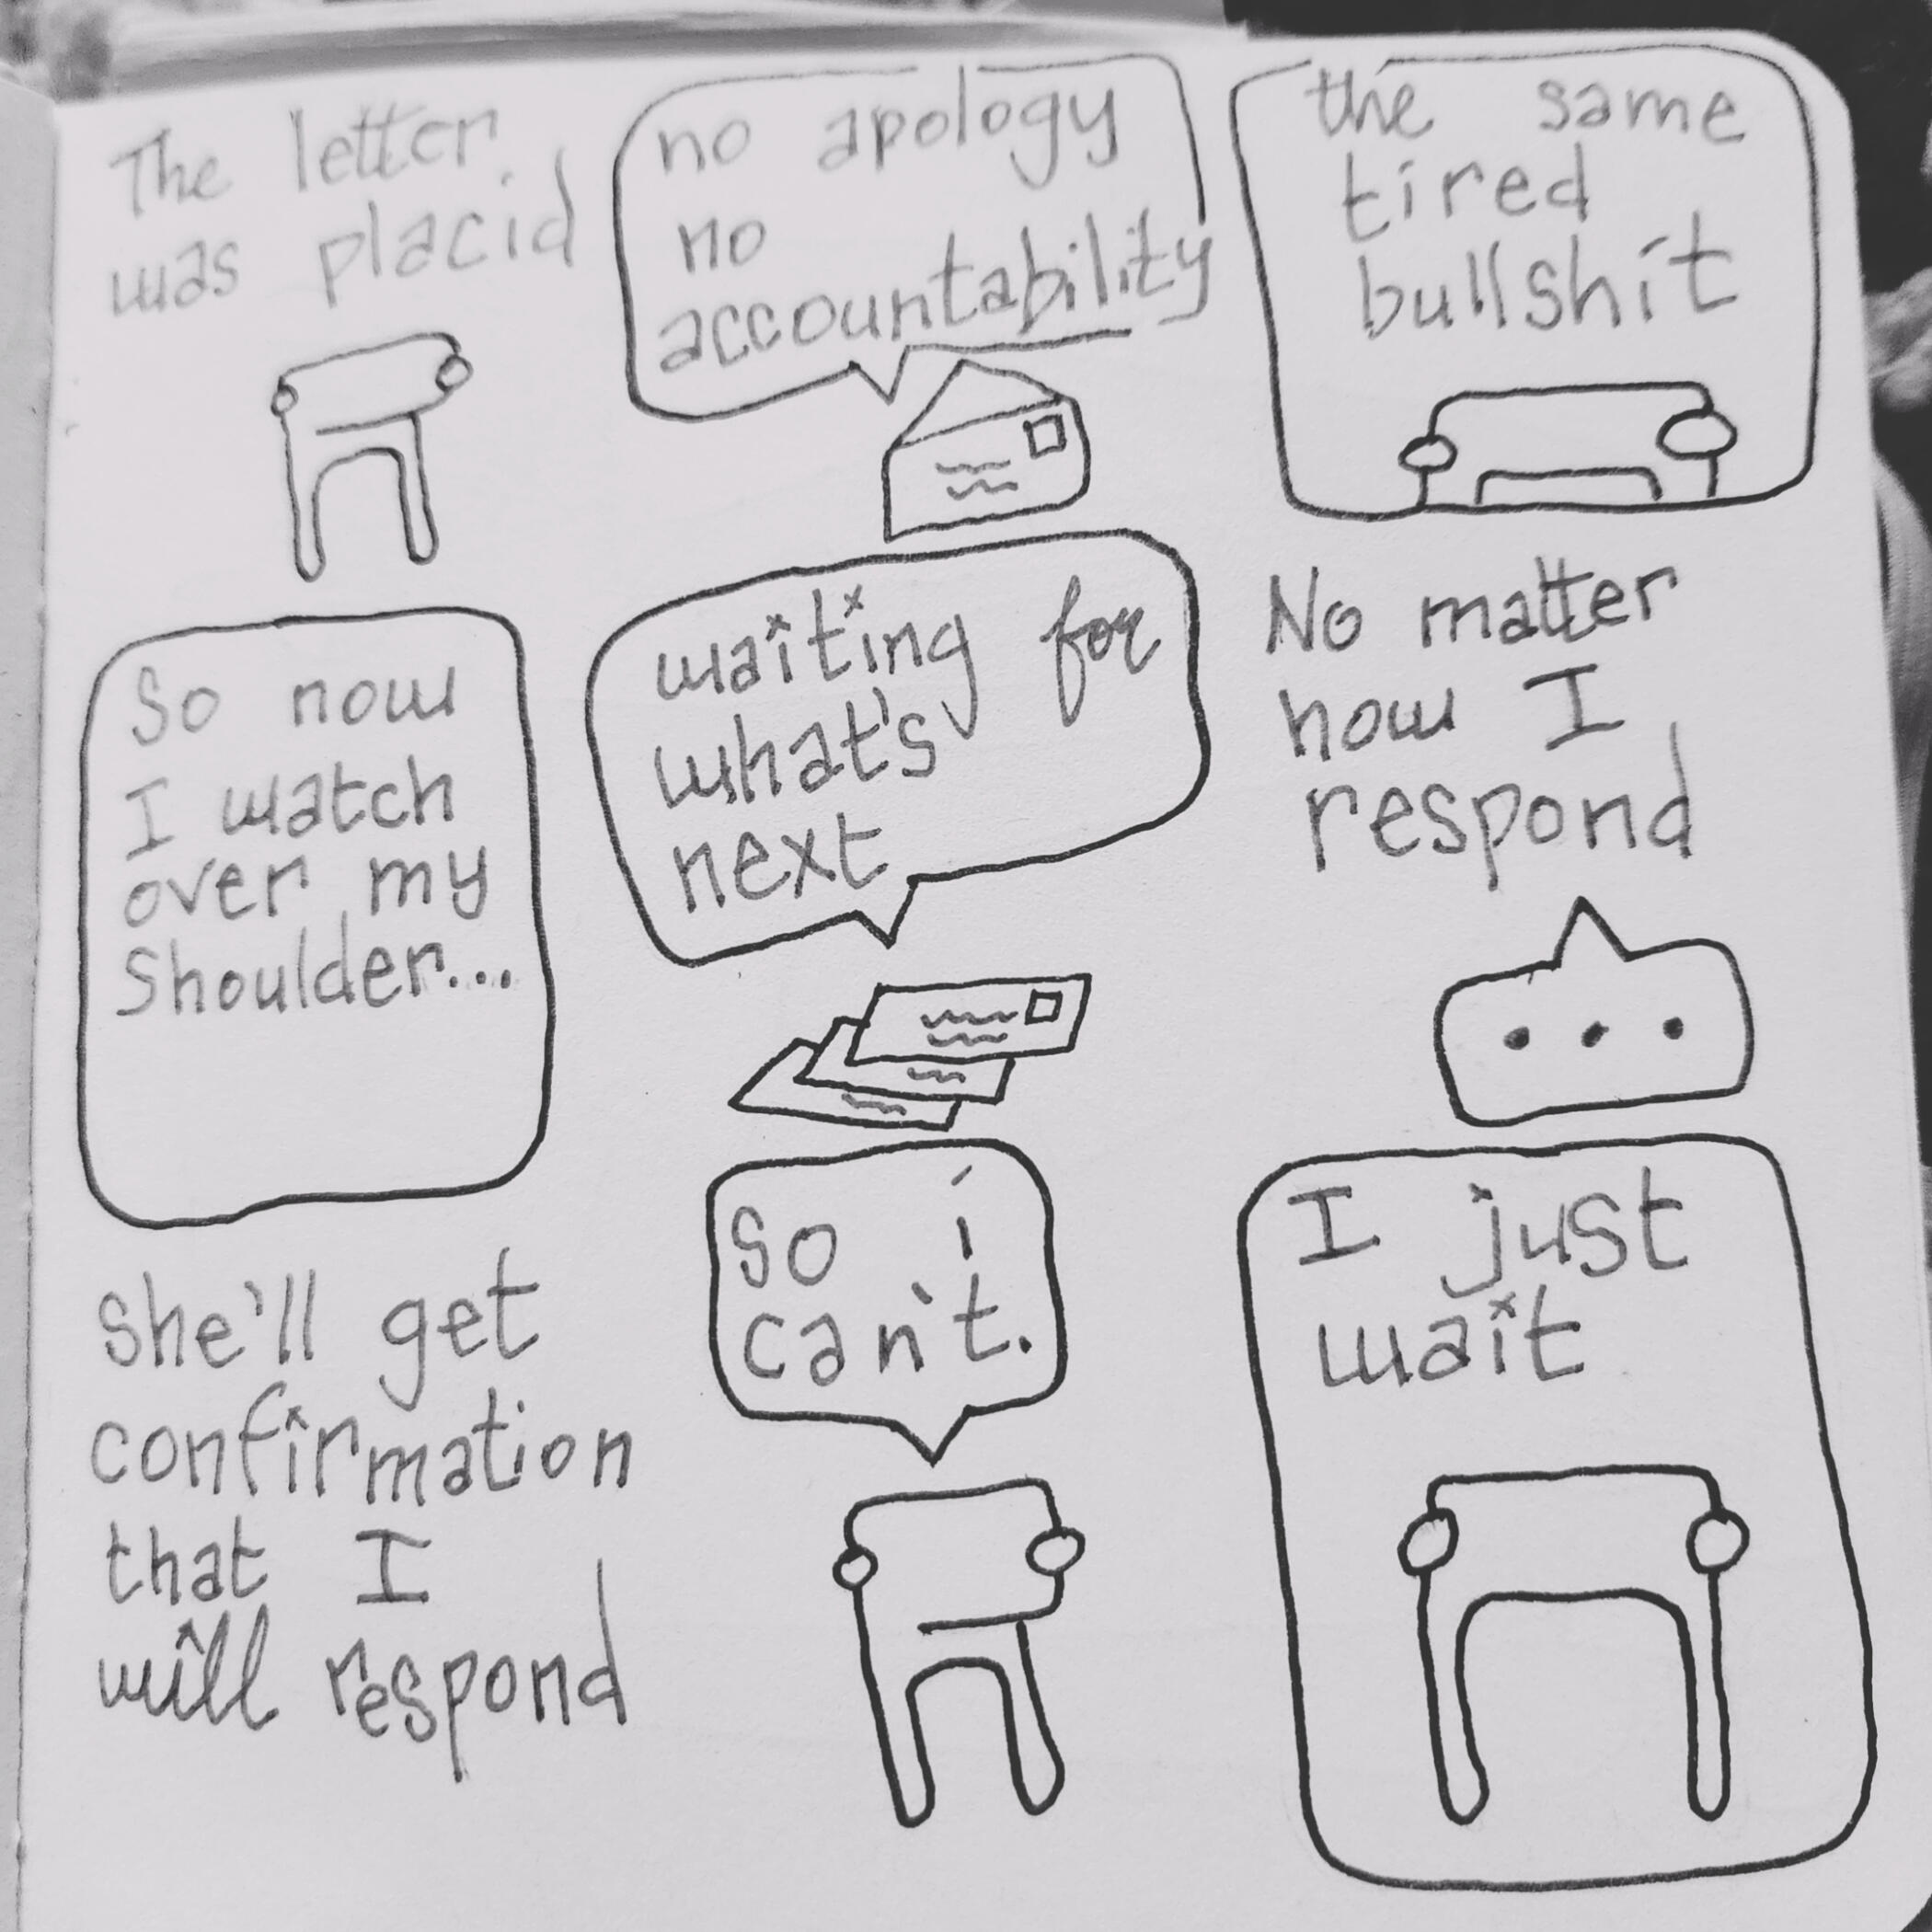 The letter
was placid
no apology
no
accountability
the same
tired
bullshit
So now
I watch
over my
Shoulder...
waiting for
what's
next
No matter
how I
respond
...
She'll get
confirmation
that I
will respond
So i
can't.
I just
wait